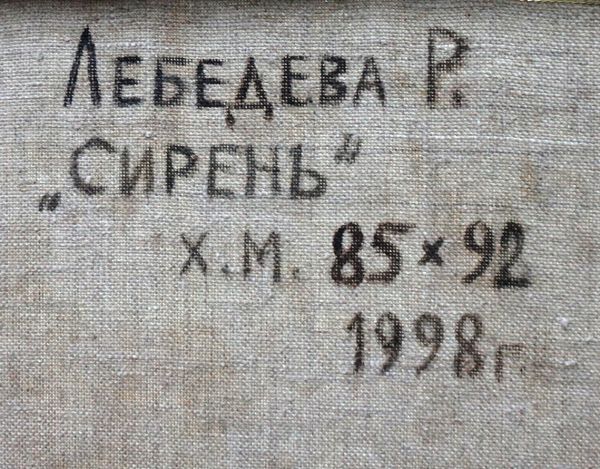 ЛЕБЕДЕВА Р.
„СИРЕНЬ“
Х.М. 85×92
1998г.